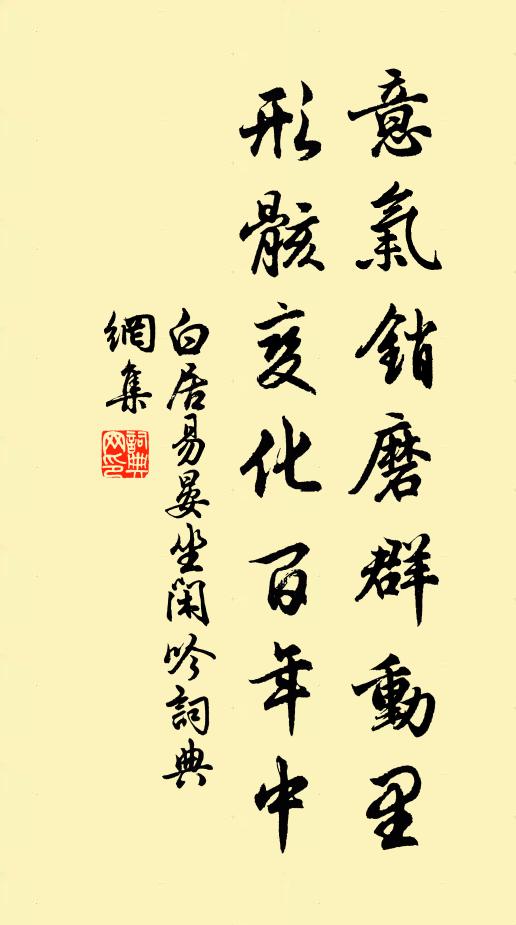 意氣銷磨群動里
形骸变化百年中
白居易晏坐閑吟詞典
網集
詞典
网印